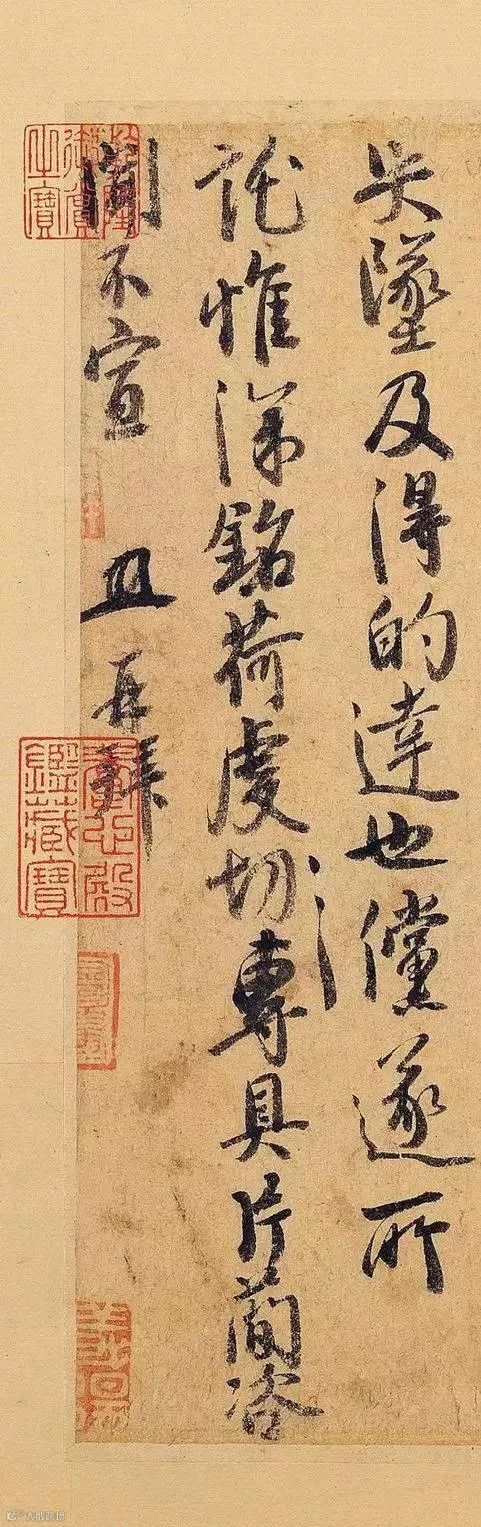 失墜及得的達也儻遂所
託惟深銘荷虔切專具片簡咨
聞不宣 且再拜
乾隆御覽之寶
養心殿鑑藏寶